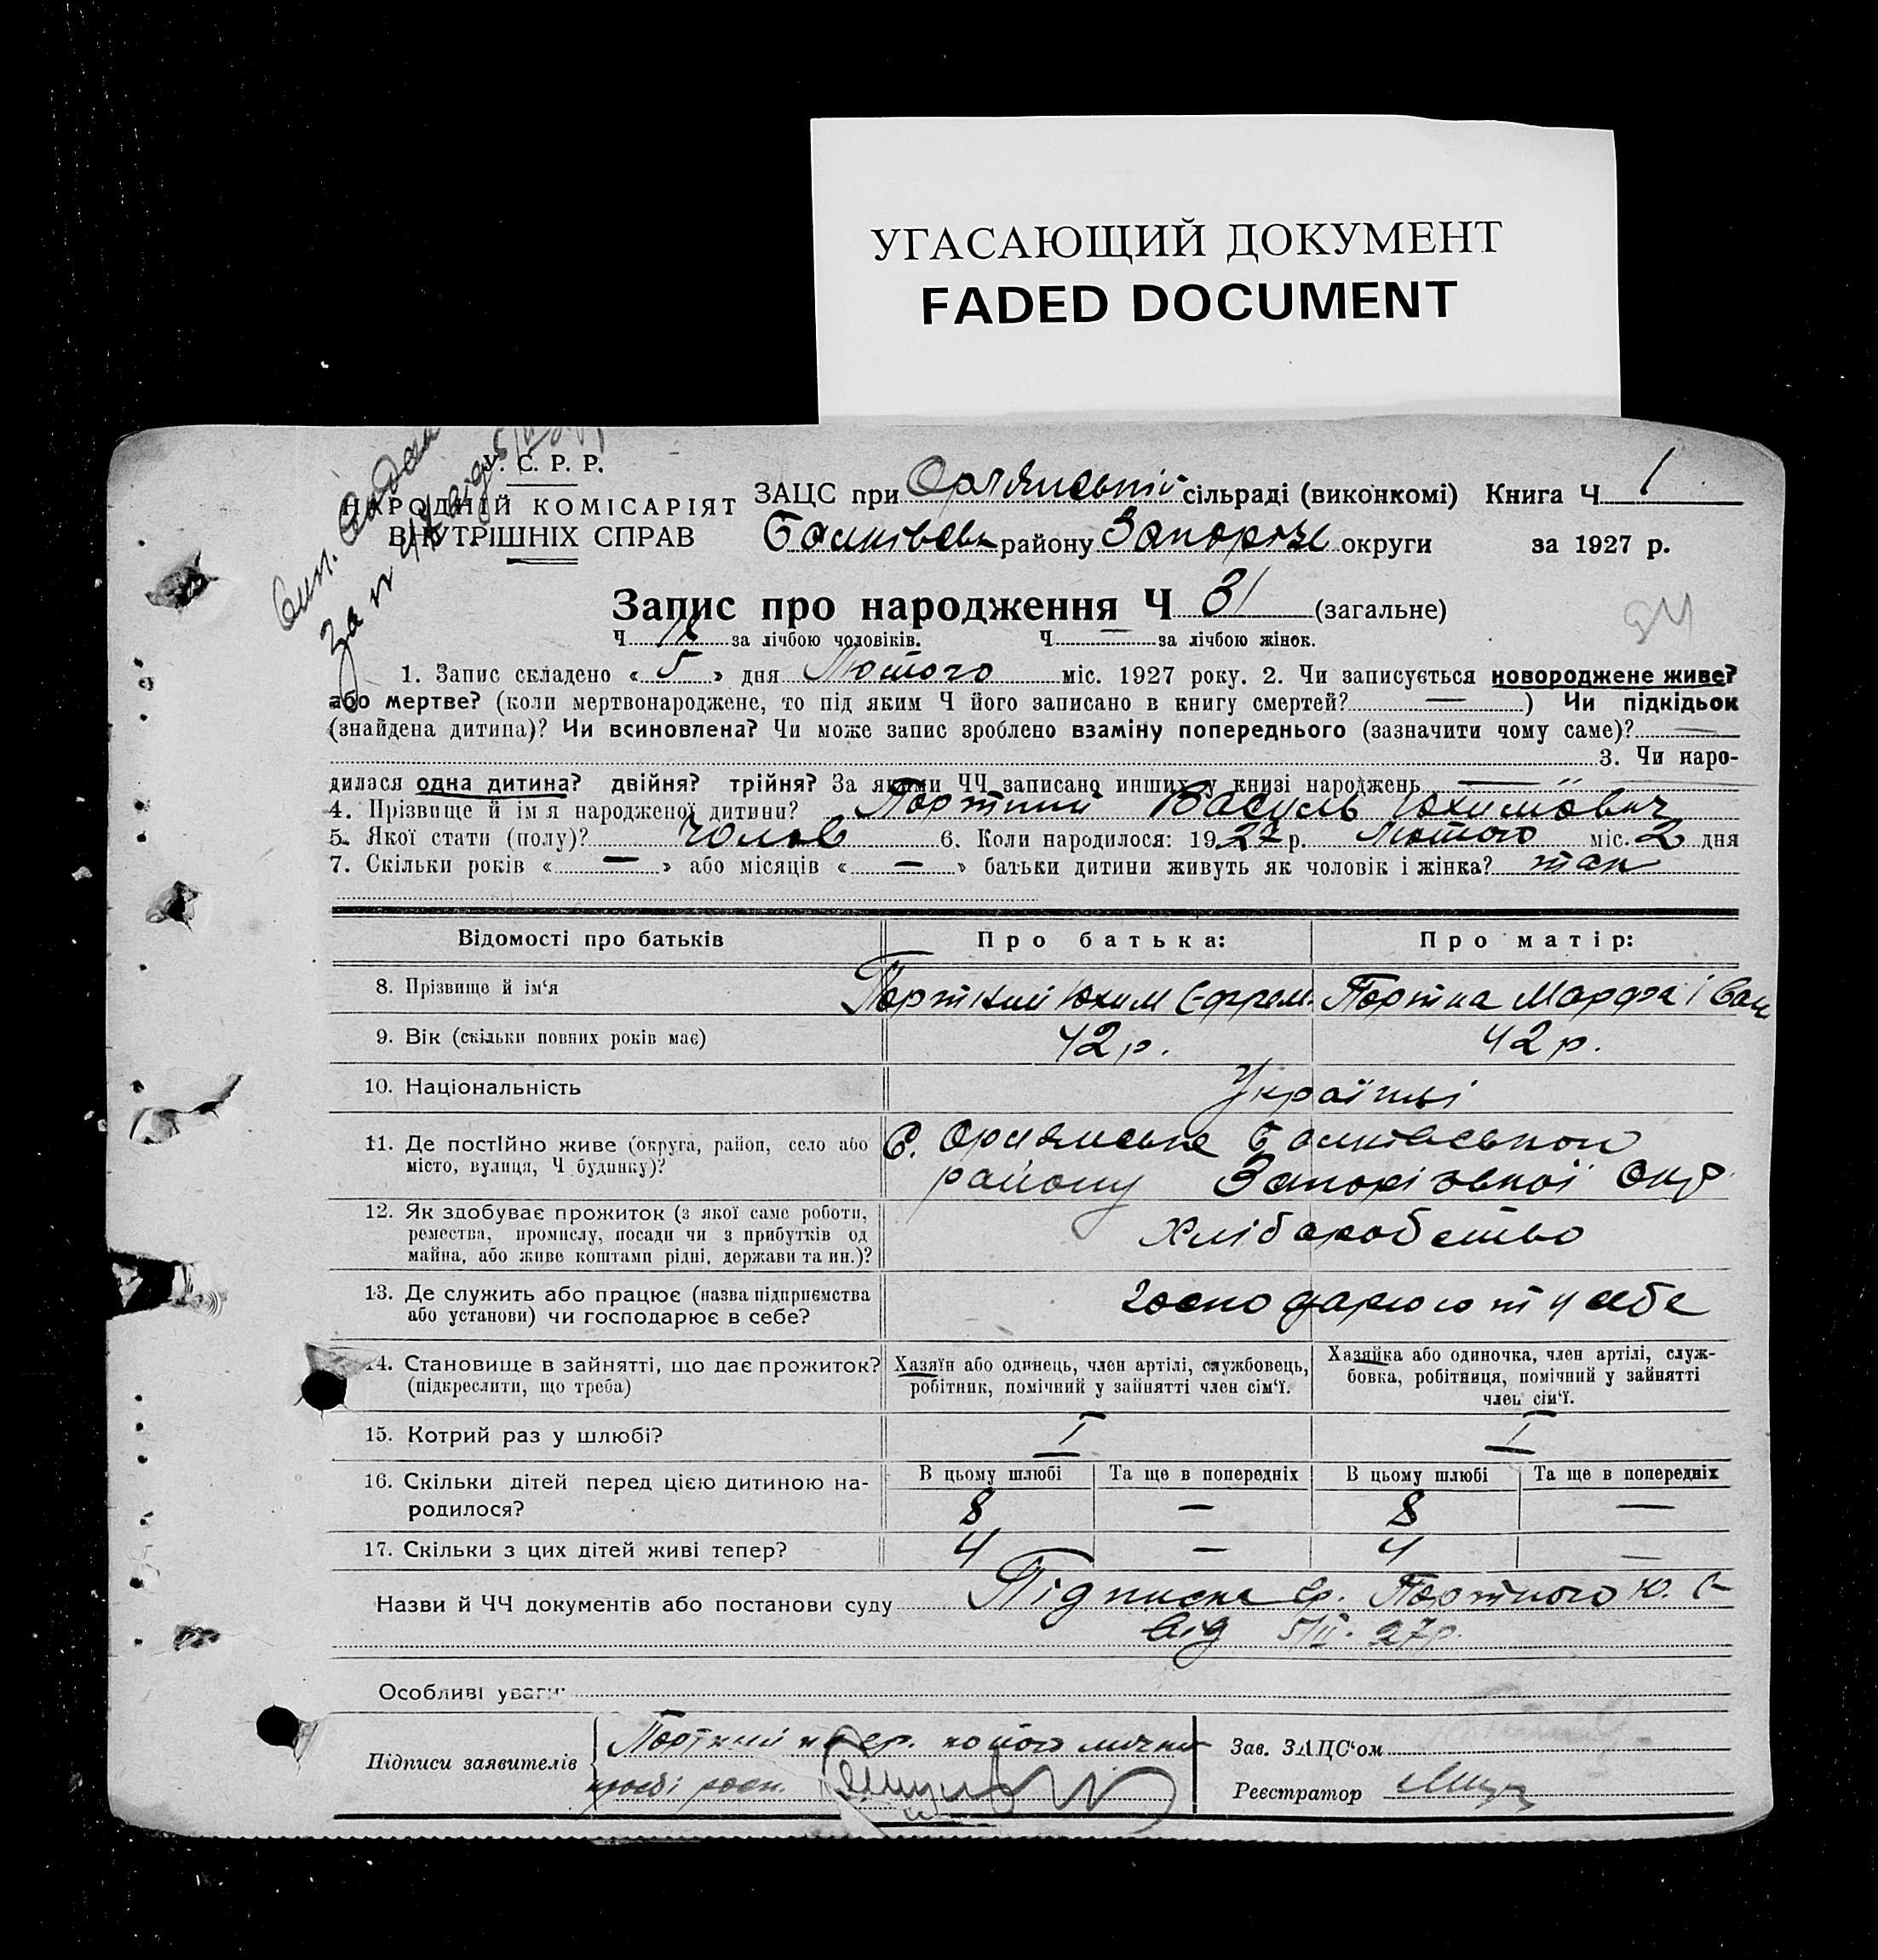 УГАСАЮЩИЙ ДОКУМЕНТ
FADED DOCUMENT
У. С. Р. Р.
НАРОДНІЙ КОМІСАРІЯТ
ВНУТРІШНІХ СПРАВ
ЗАЦС при Орлянській сільраді (виконкомі) Книга Ч 1
району округи за 1927 р.
Запис про народження Ч 31 (загальне)
Ч за лічбою чоловіків. Ч — за лічбою жінок.
1. Запис складено « 5 » дня Лютого міс. 1927 року. 2. Чи записується новороджене живе?
або мертве? (коли мертвонароджене, то під яким Ч його записано в книгу смертей? — ) Чи підкідьок
(знайдена дитина)? Чи всиновлена? Чи може запис зроблено взаміну попереднього (зазначити чому саме)? —
3. Чи наро-
дилася одна дитина? двійня? трійня? За якими ЧЧ записано инших у книзі народжень —
4. Прізвище й ім'я народженої дитини? Портний Василь Юхимович
5. Якої стати (полу)? Чолов 6. Коли народилося: 1927 р. Лютого міс. 2 дня
7. Скільки років « — » або місяців « — » батьки дитини живуть як чоловік і жінка? так
Відомості про батьків Про батька: Про матір:
8. Прізвище й ім'я Портний Юхим Єфрем. Портна Марфа Іван
9. Вік (скільки повних років має) 42 р. 42 р.
10. Національність Українці
11. Де постійно живе (округа, район, село або
місто, вулиця, Ч будинку)?
С. Орлянське
району Запорізької Окр.
12. Як здобуває прожиток (з якої саме роботи,
ремества, промислу, посади чи з прибутків од
майна, або живе коштами рідні, держави та ин.)?
Хліборобство
13. Де служить або працює (назва підприємства
або установи) чи господарює в себе?
господарюют у себе
14. Становище в зайнятті, що дає прожиток?
(підкреслити, що треба)
Хазяїн або одинець, член артілі, службовець,
робітник, помічний у зайнятті член сім'ї.
Хазяйка або одиночка, член артілі, служ-
бовка, робітниця, помічний у зайнятті
член сім'ї.
15. Котрий раз у шлюбі? I I
16. Скільки дітей перед цією дитиною на-
родилося?
В цьому шлюбі Та ще в попередніх В цьому шлюбі Та ще в попередніх
8 — 8 —
17. Скільки з цих дітей живі тепер? 4 — 4 —
Назви й ЧЧ документів або постанови суду Підписка гр. Портного Ю. Є
від 5/II. 27р.
Особливі уваги:
Підписи заявителів Портний
Зав. ЗАЦС'ом
Реєстратор